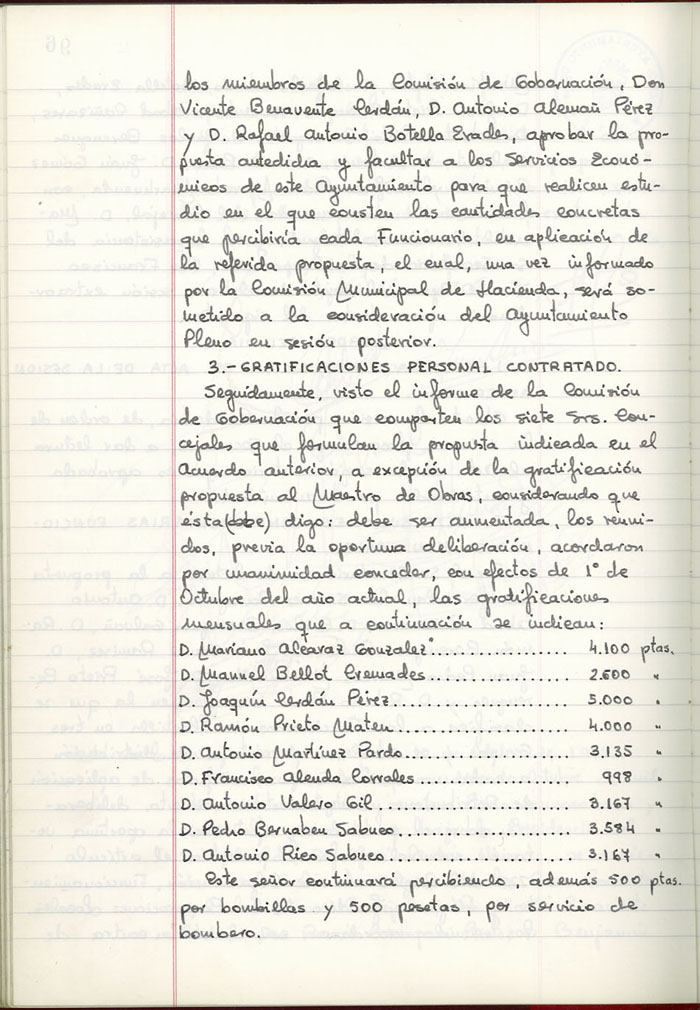 los miembros de la Comisión de Gobernación, Don
Vicente Benavente Cerdán, D. Antonio Alemañ Pérez
y D. Rafael Antonio Botella Erades, aprobar la pro-
puesta antedicha y facultar a los Servicios Econó-
micos de este Ayuntamiento para que realicen estu-
dio en el que consten las cantidades concretas
que percibiría cada Funcionario, en aplicación de
la referida propuesta, el cual, una vez informado
por la Comisión Municipal de Hacienda, será so-
metido a la consideración del Ayuntamiento
Pleno en sesión posterior.
3.- GRATIFICACIONES PERSONAL CONTRATADO.
Seguidamente, visto el informe de la Comisión
de Gobernación que comparten los siete Srs. Con-
cejales que formulan la propuesta indicada en el
Acuerdo anterior, a excepción de la gratificación
propuesta al Maestro de Obras, considerando que
ésta (debe) digo: debe ser aumentada, los reuni-
dos, previa la oportuna deliberación, acordaron
por unanimidad conceder, con efectos de 1º de
Octubre del año actual, las gratificaciones
mensuales que a continuación se indican:
D. Mariano Alcaraz Gonzalez............... 4.100 ptas.
D. Manuel Bellot Cremades............... 2.600 "
D. Joaquín Cerdán Pérez............... 5.000 "
D. Ramón Prieto Mateu............... 4.000 "
D. Antonio Martínez Pardo............... 3.135 "
D. Francisco Alenda Corrales............... 998 "
D. Antonio Valero Gil............... 3.167 "
D. Pedro Bernabeu Sabuco............... 3.584 "
D. Antonio Rico Sabuco............... 3.167 "
Este señor continuará percibiendo, además 500 ptas.
por bombillas y 500 pesetas, por servicio de
bombero.